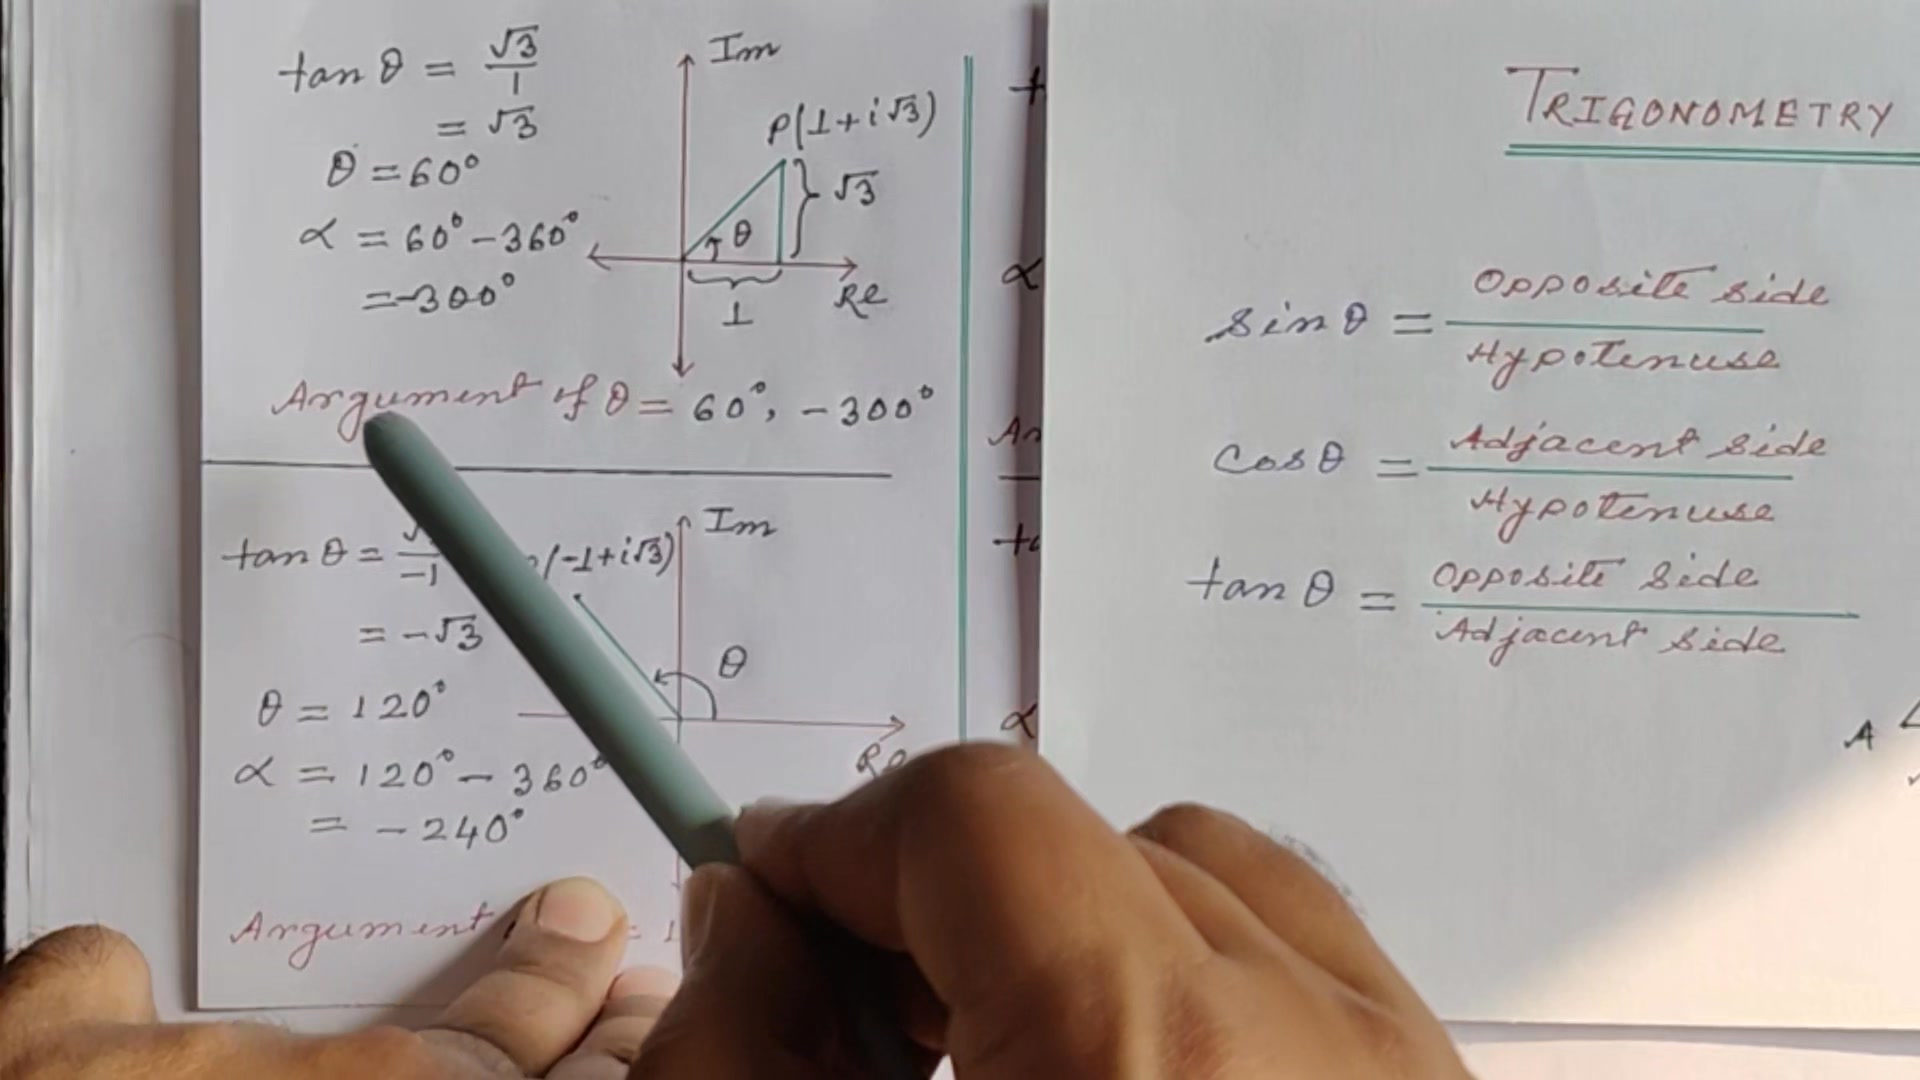 tan θ = √3/1
= √3
θ = 60°
α = 60° - 360°
= -300°
Im
P(1+i√3)
√3
θ
1
Re
Argument of θ = 60°, -300°
tan θ = /-1
= -√3
θ = 120°
α = 120° - 360°
= -240°
Im
(-1+i√3)
θ
Re
Argument = 1
α
α
TRIGONOMETRY
sin θ = Opposite side/Hypotenuse
cos θ = Adjacent side/Hypotenuse
tan θ = Opposite side/Adjacent side
A